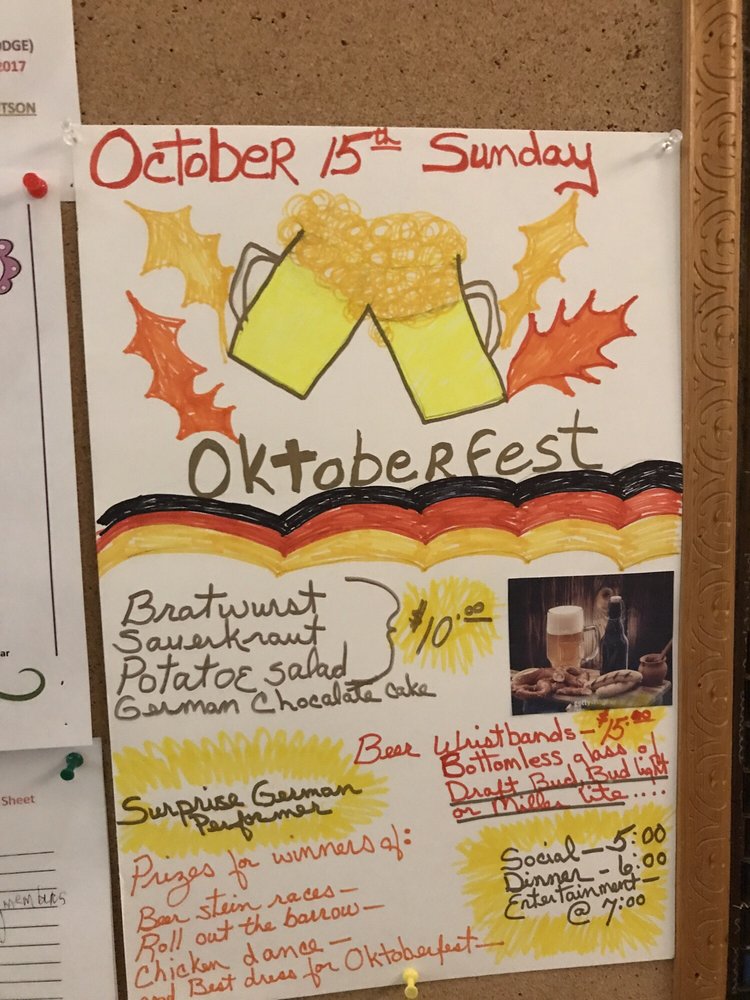 ODGE)
2017
TSON
October 15th Sunday
Oktoberfest
Bratwurst
Sauerkraut
Potatoe Salad
$10.00
German Chocalate Cake
Beer Wristbands - $15.00
Bottomless glass of
Draft Bud, Bud light
or Miller lite....
Surprise German
Performer
Prizes for winners of:
Beer stein races -
Roll out the barrow -
Chicken dance -
and Best dress for Oktoberfest -
Social - 5:00
Dinner - 6:00
Entertainment -
@ 7:00
ar
Sheet
members